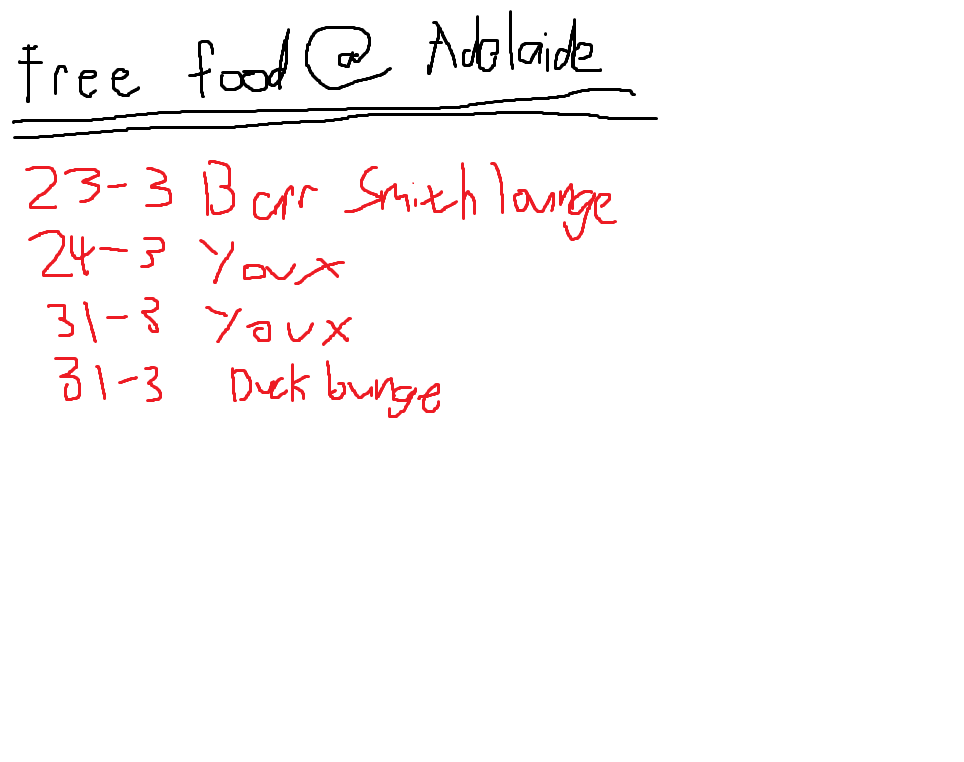 free food @ Adelaide
23-3 Barr Smith lounge
24-3 Youx
31-3 Youx
31-3 Duck lounge